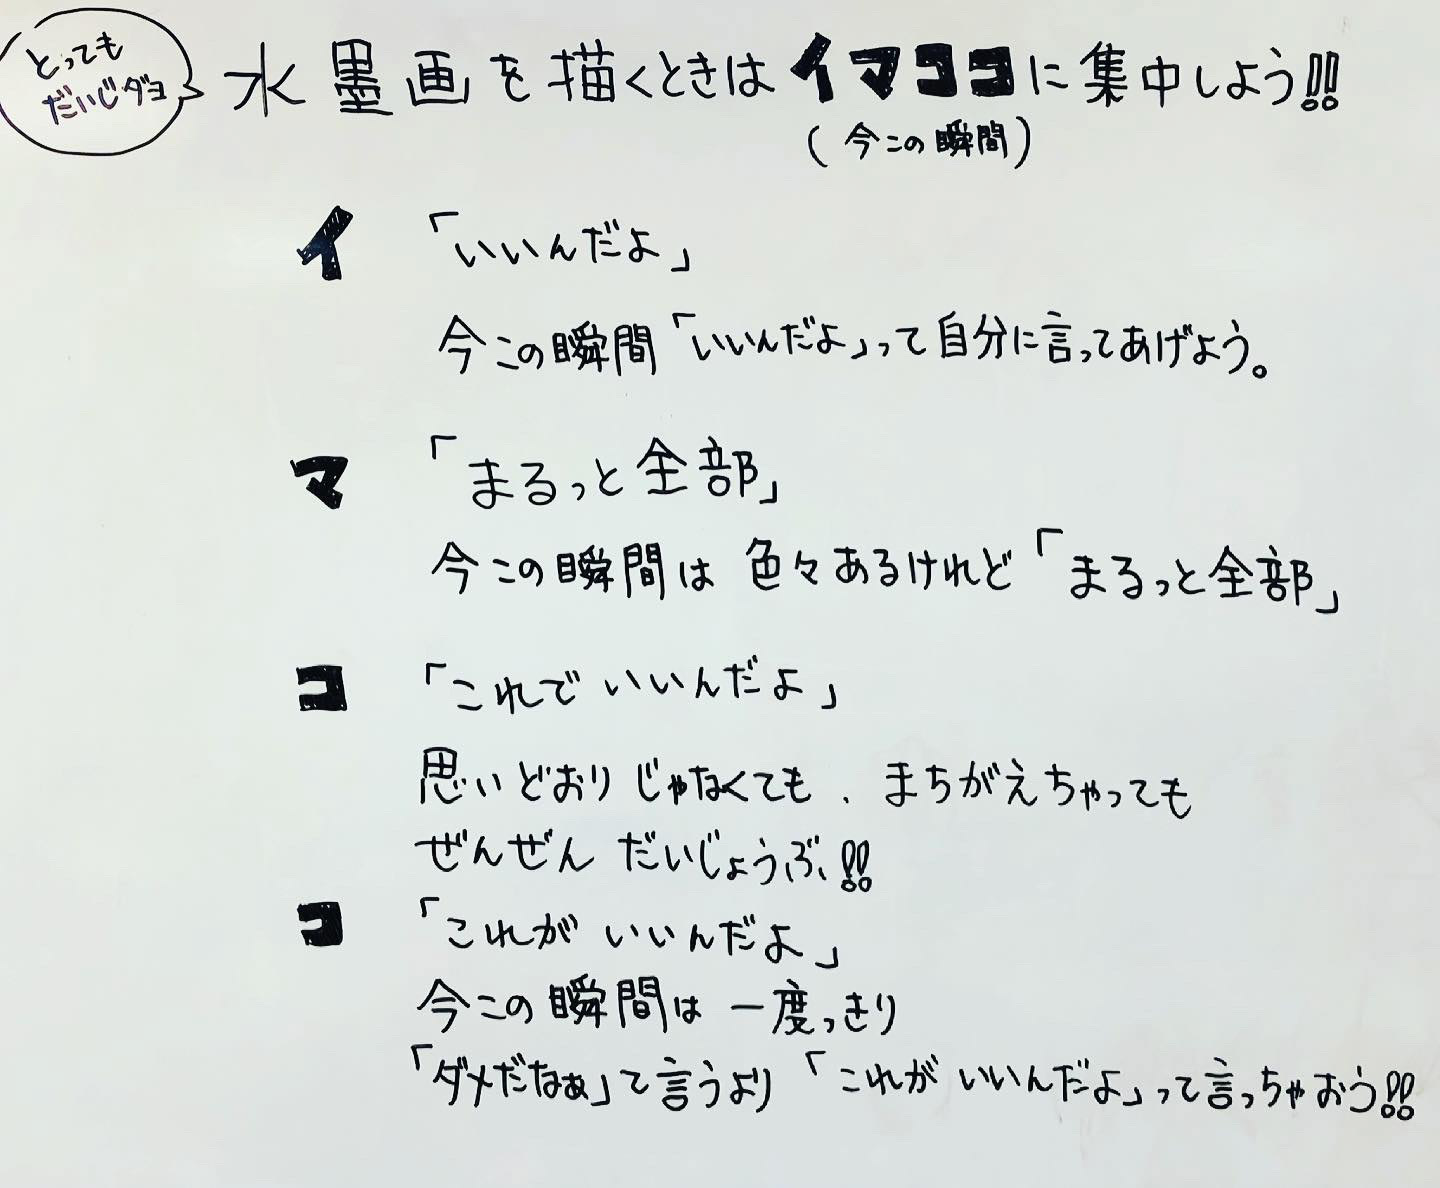 とっても
だいじダヨ
水墨画を描くときはイマココに集中しよう!!
(今この瞬間)
イ 「いいんだよ」
今この瞬間「いいんだよ」って自分に言ってあげよう。
マ 「まるっと全部」
今この瞬間は色々あるけれど「まるっと全部」
コ 「これでいいんだよ」
思いどおりじゃなくても、まちがえちゃっても
ぜんぜんだいじょうぶ!!
コ 「これがいいんだよ」
今この瞬間は一度っきり
「ダメだなぁ」て言うより「これがいいんだよ」って言っちゃおう!!